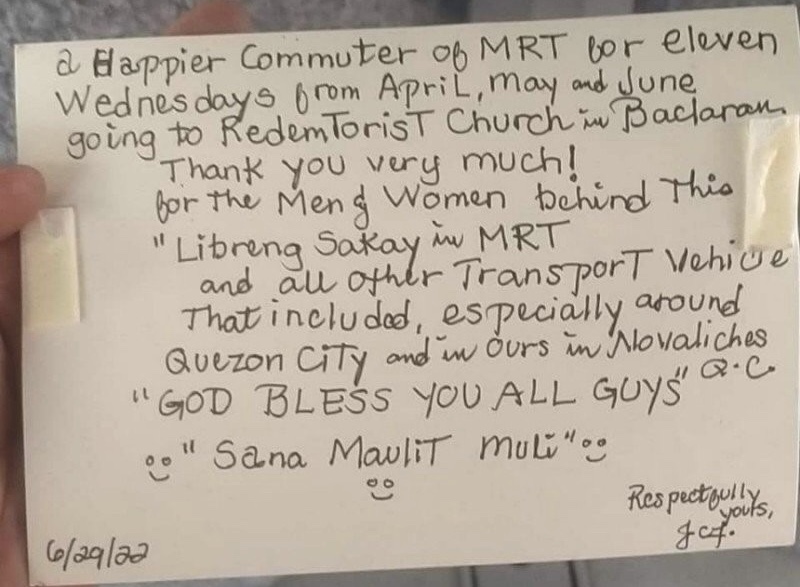 a Happier Commuter of MRT for eleven
Wednesdays from April, May and June
going to Redemtorist Church in Baclaran.
Thank you very much!
for the Men & Women behind This
"Libreng Sakay in MRT
and all other Transport Vehicle
That included, especially around
Quezon City and in ours in Novaliches
Q.C
"GOD BLESS YOU ALL GUYS"
"Sana Maulit muli"
Respectfully
yours,
jcf.
6/29/22